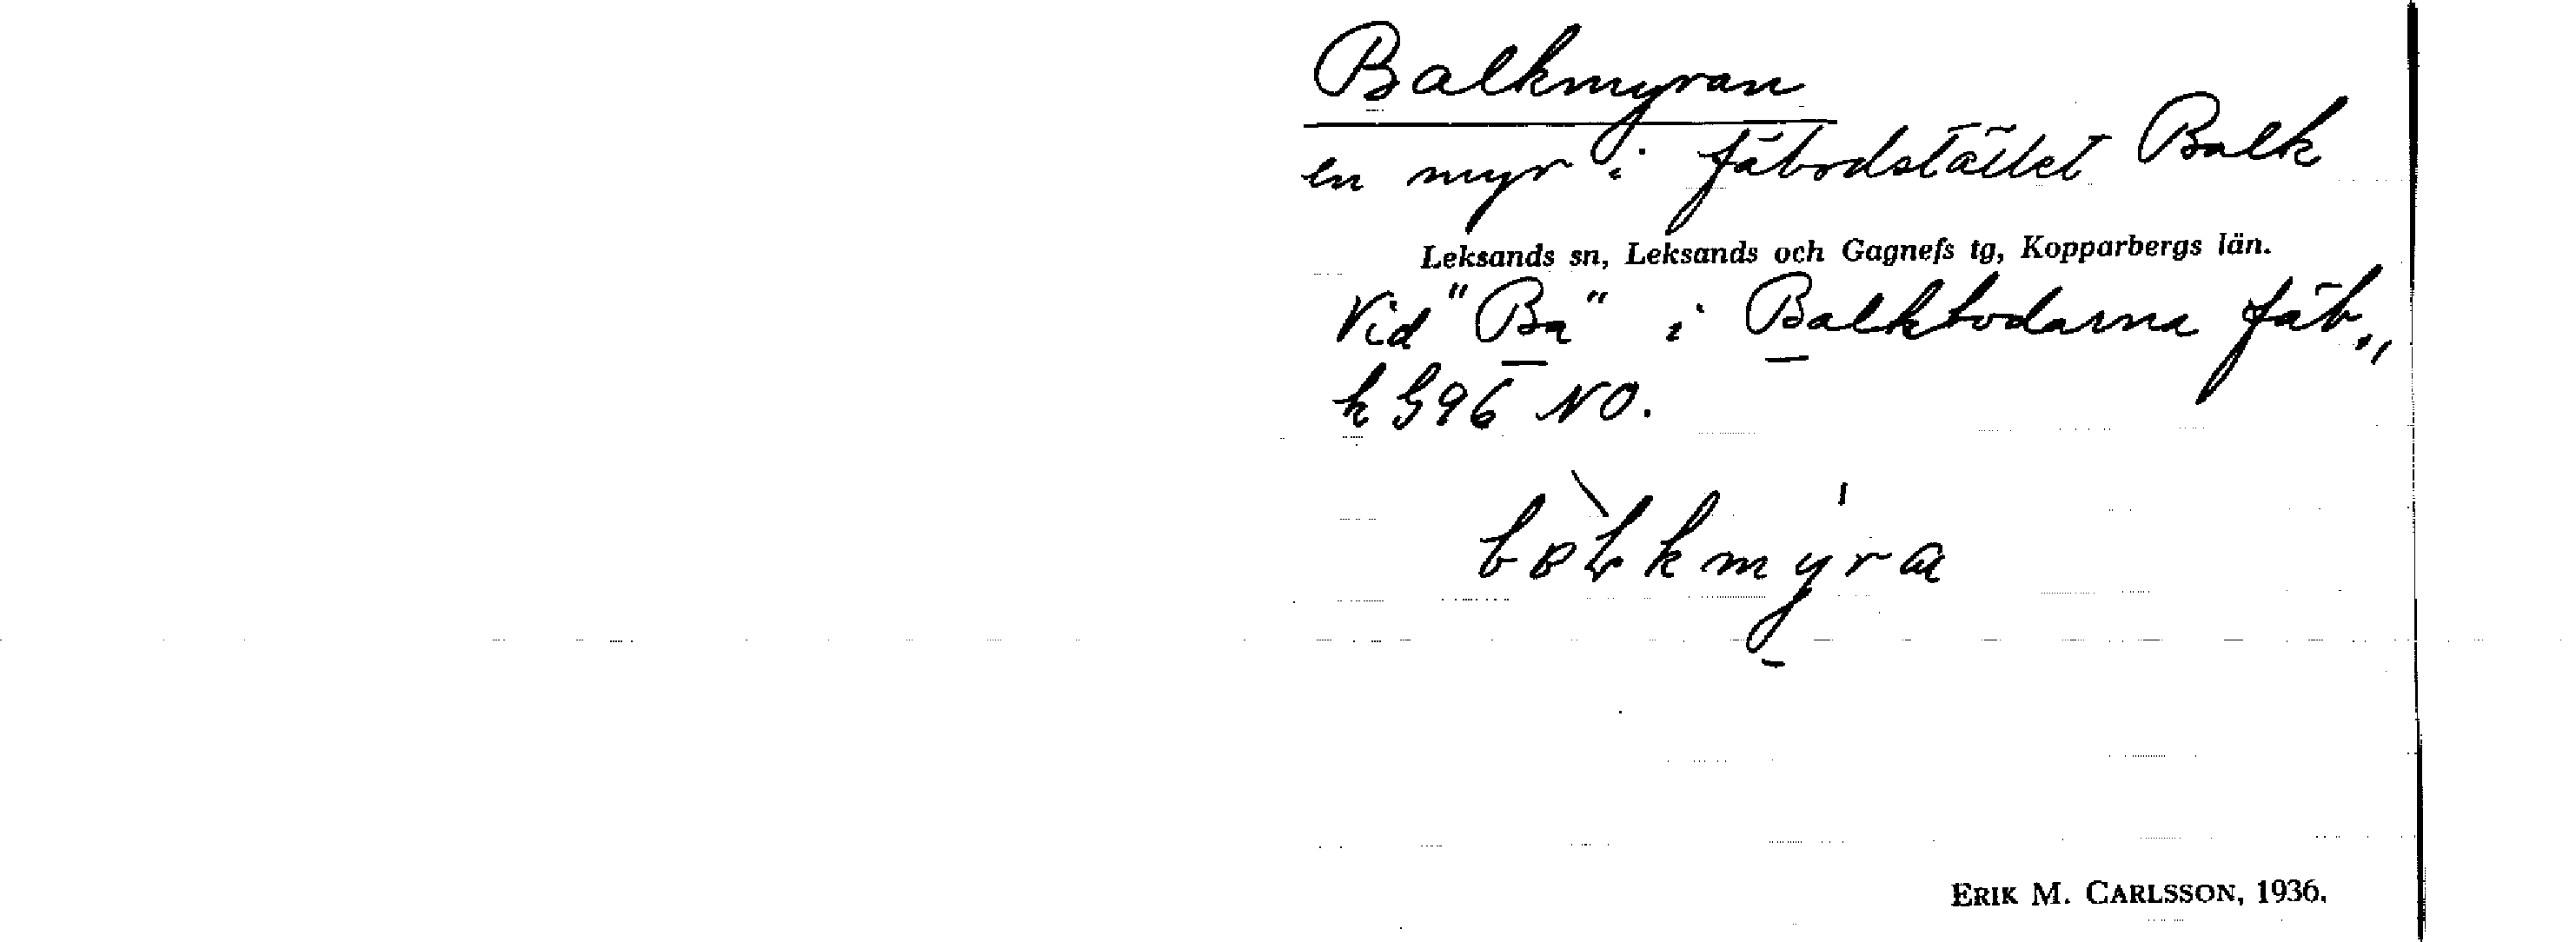 Balkmyran
en myr i fäbodstället Balk
Leksands sn, Leksands och Gagnefs tg, Kopparbergs län.
Vid "Ba" i Balkbodarna fäb.,
k G96 NO.
bòLkmy̠ra
ERIK M. CARLSSON, 1936.